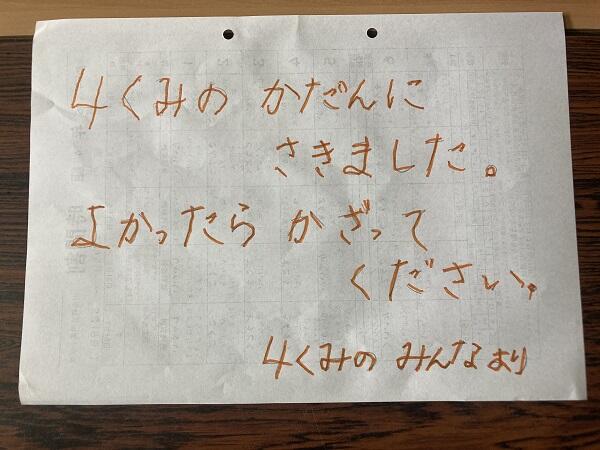 4くみの かだんに
さきました。
よかったら かざって
ください。
4くみの みんなより